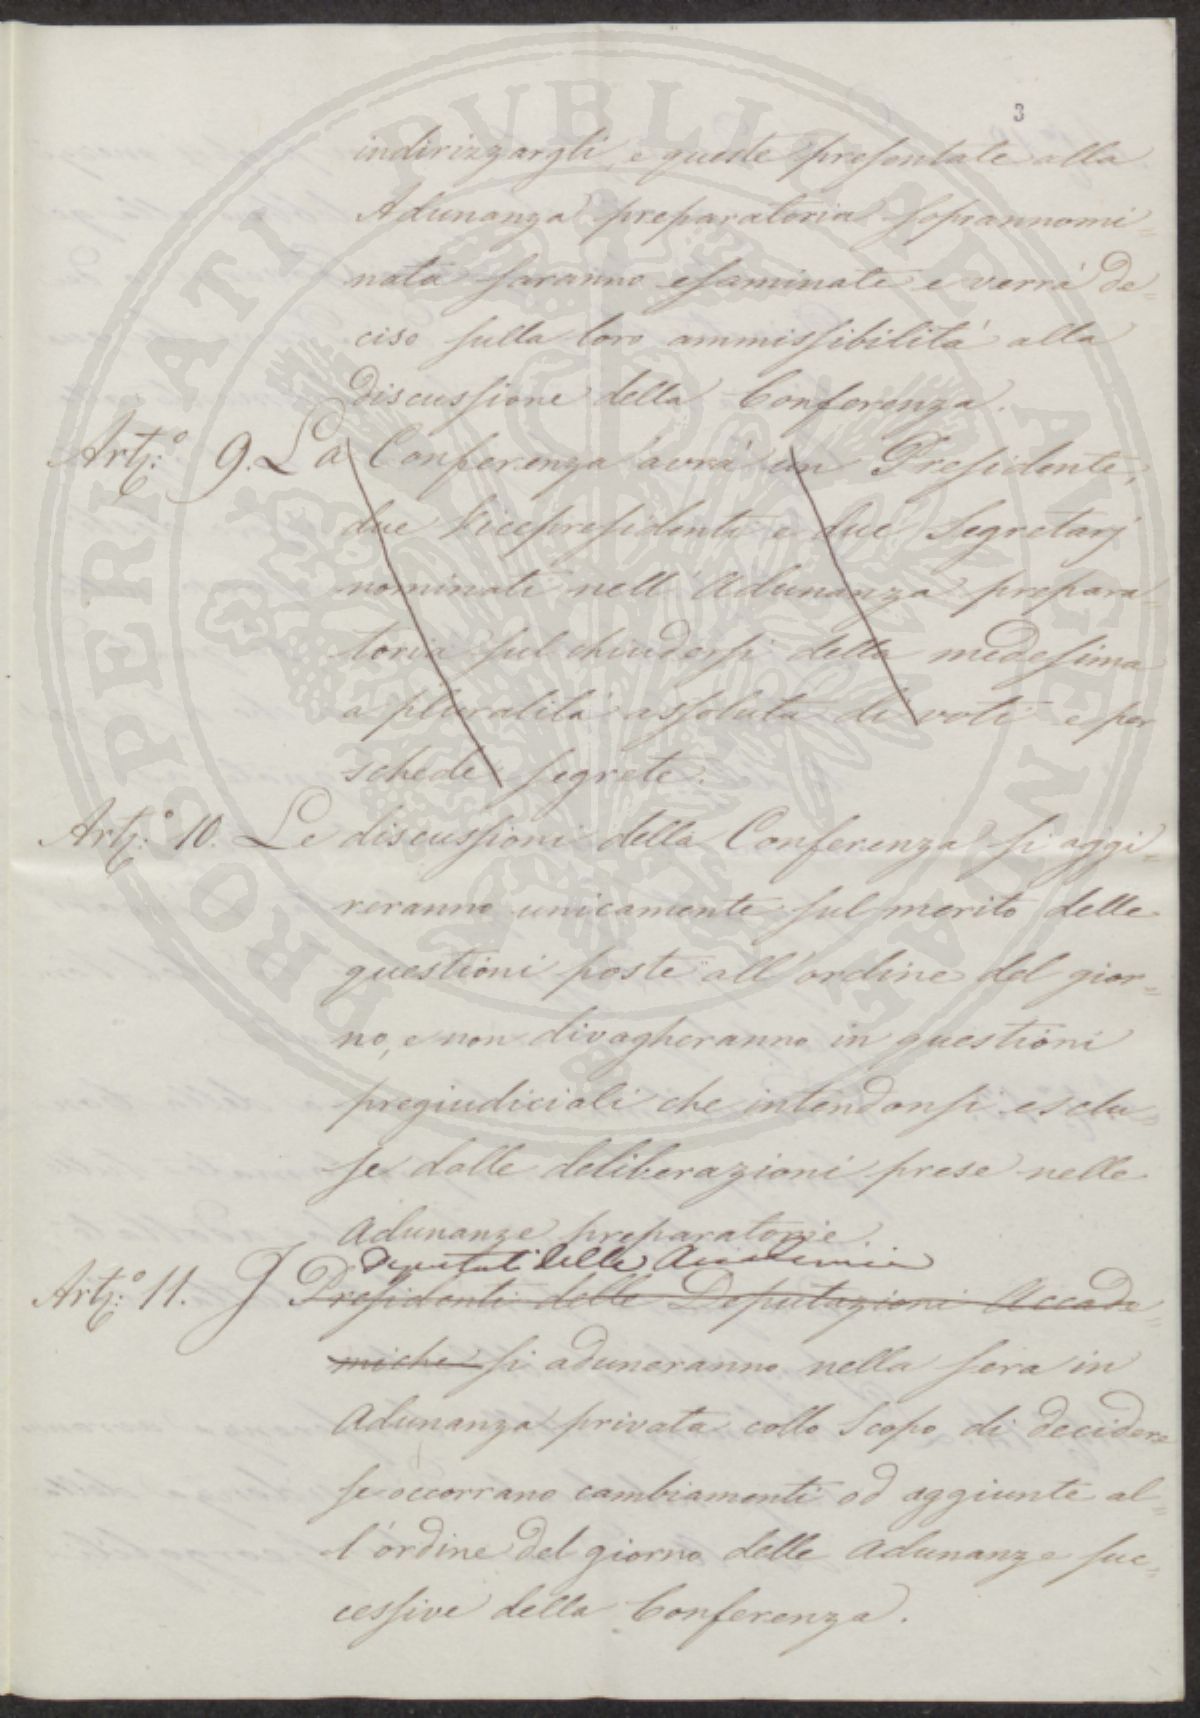 3
indirizzargli, e queste presentate alla
Adunanza preparatoria soprannomi=
nata saranno esaminate e verrà de=
ciso sulla loro ammissibilità alla
discussione della Conferenza.
Art.° 9. La Conferenza avrà un Presidente,
due Vicepresidenti e due Segretarj
nominati nell'Adunanza prepara=
toria sul chiudersi della medesima
a pluralità assoluta di voti e per
schede segrete.
Art.° 10. Le discussioni della Conferenza si aggi=
reranno unicamente sul merito delle
questioni poste all'ordine del gior=
no, e non divagheranno in questioni
pregiudiciali che intendonsi esclu=
se dalle deliberazioni prese nelle
Adunanze preparatorie.
Deputati delle Accademie
Art.° 11. I Presidenti delle Deputazioni Accade=
miche si aduneranno nella sera in
Adunanza privata collo scopo di decidere
se occorrano cambiamenti od aggiunte al=
l'ordine del giorno delle Adunanze suc=
cessive della Conferenza.
PROSPERITATI PUBLICAE AUGENDAE